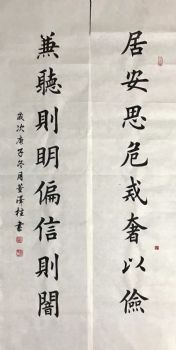 居安思危戒奢以儉
兼聽則明偏信則闇
歲次庚子冬月黃澤柱書